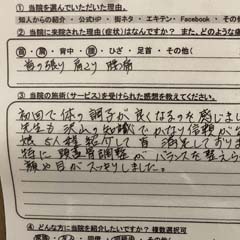 ① 当院を選んでいただいた理由。
知人からの紹介 ・ 公式HP ・ 街ネタ ・ エキテン ・ Facebook ・ その
② 当院に来院された理由(症状)はなんですか? また、どのような痛
首・肩・背中・腰・ひざ・足首・その他(
首の張り 肩こり 腰痛
③ 当院の施術(サービス)を受けられた感想を教えてください。
初回で体の調子が良くなるのを感じまし
先生も沢山の知識でかなり信頼が
後5人程紹介して皆
特に頭蓋骨調整がバランスを整えら
顔や目がスッキリしました。
④ どんな方に当院を紹介したいですか? 複数選択可
家族・友人・同僚